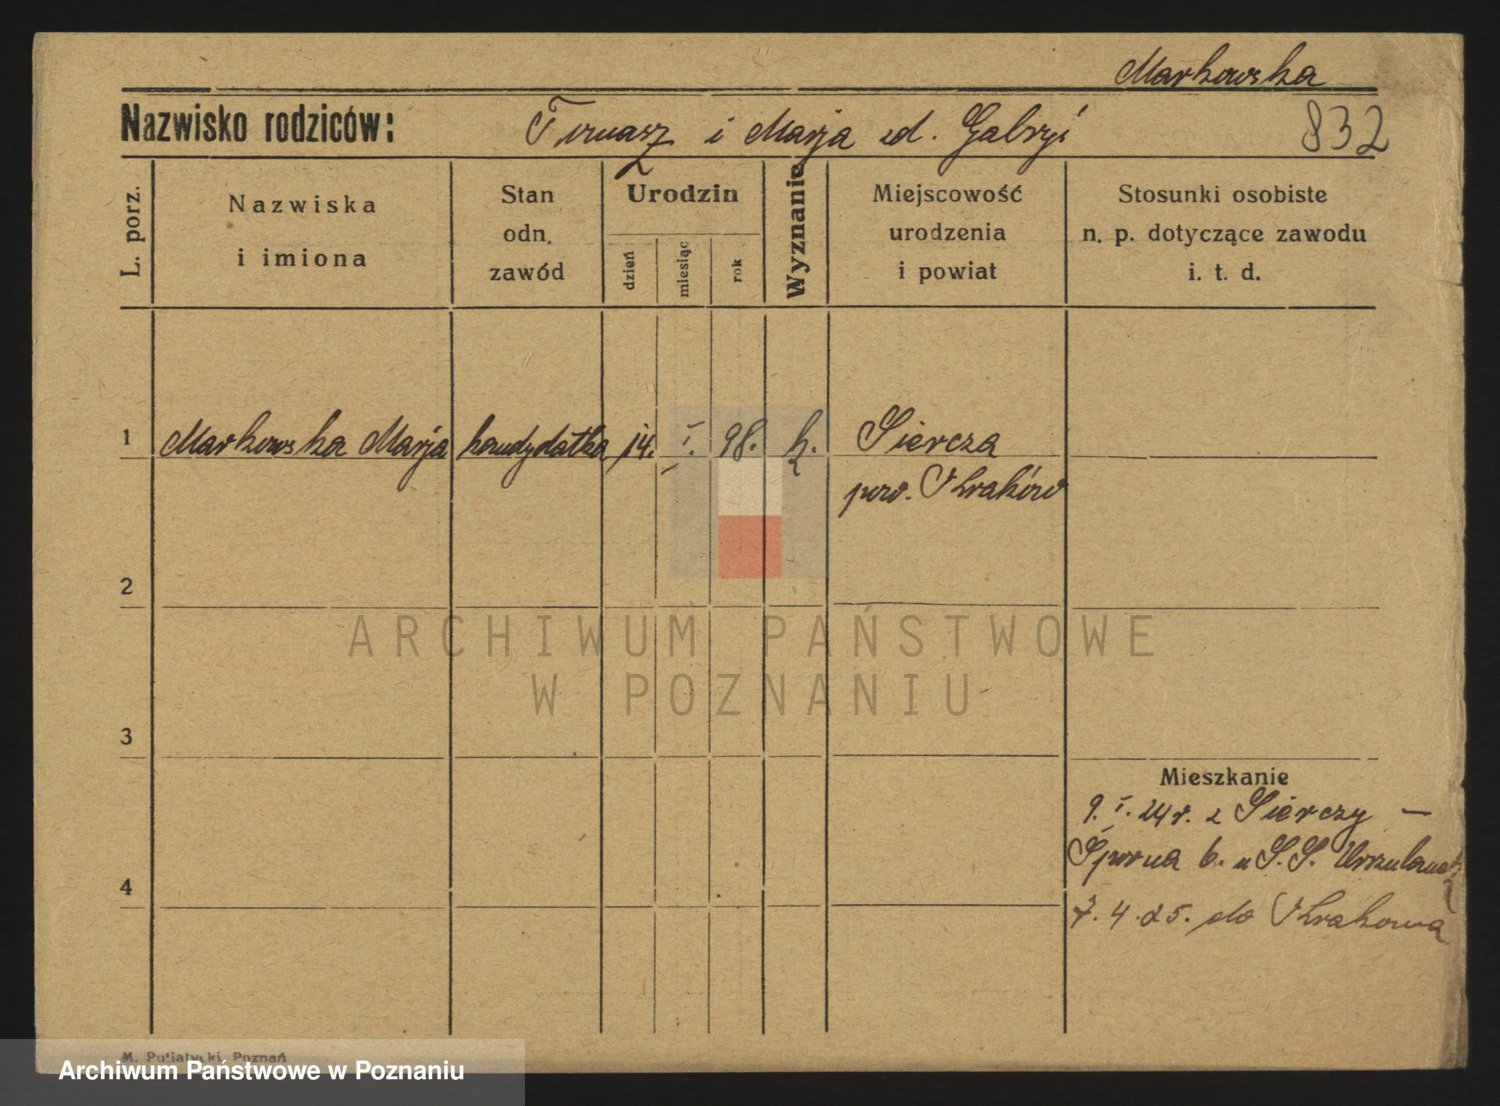 Markowska
Nazwisko rodziców: Tomasz i Marja z d. Gabryś 832
L. porz.
Nazwiska
i imiona
Stan
odn.
zawód
Urodzin
dzień
miesiąc
rok
Wyznanie
Miejscowość
urodzenia
i powiat
Stosunki osobiste
n. p. dotyczące zawodu
i. t. d.
1 Markowska Marja kandydatka 14. I. 98. k. Siercza
pow. Kraków
2
3
4
Mieszkanie
9. I. 24 r. z Sierczy —
Sporna 6. u S.S. Urszulanek
7. 4. 25. do Krakowa
ARCHIWUM PAŃSTWOWE
W POZNANIU
M. Putiatycki, Poznań
Archiwum Państwowe w Poznaniu